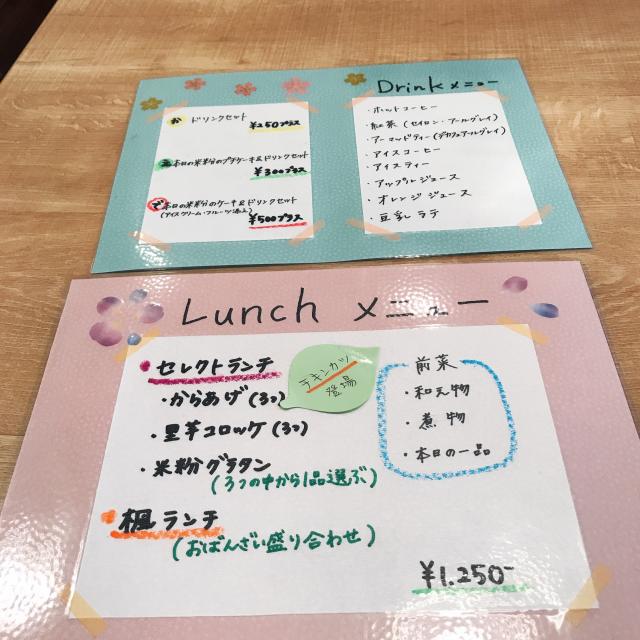 か ドリンクセット
¥250プラス
本日の米粉のプチケーキ&ドリンクセット
¥300プラス
で 本日の米粉のケーキ&ドリンクセット
(アイスクリーム・フルーツ添え)
¥500プラス
Drinkメニュー
・ホットコーヒー
・紅茶(セイロン・アールグレイ)
・アーマッドティー(デカフェアールグレイ)
・アイスコーヒー
・アイスティー
・アップルジュース
・オレンジジュース
・豆乳ラテ
Lunch メニュー
セレクトランチ
・からあげ(3コ)
・里芋コロッケ(3コ)
・米粉グラタン
(3つの中から1品選ぶ)
チキンカツ
登場
楓ランチ
(おばんざい盛り合わせ)
前菜
・和え物
・煮物
・本日の一品
¥1.250-